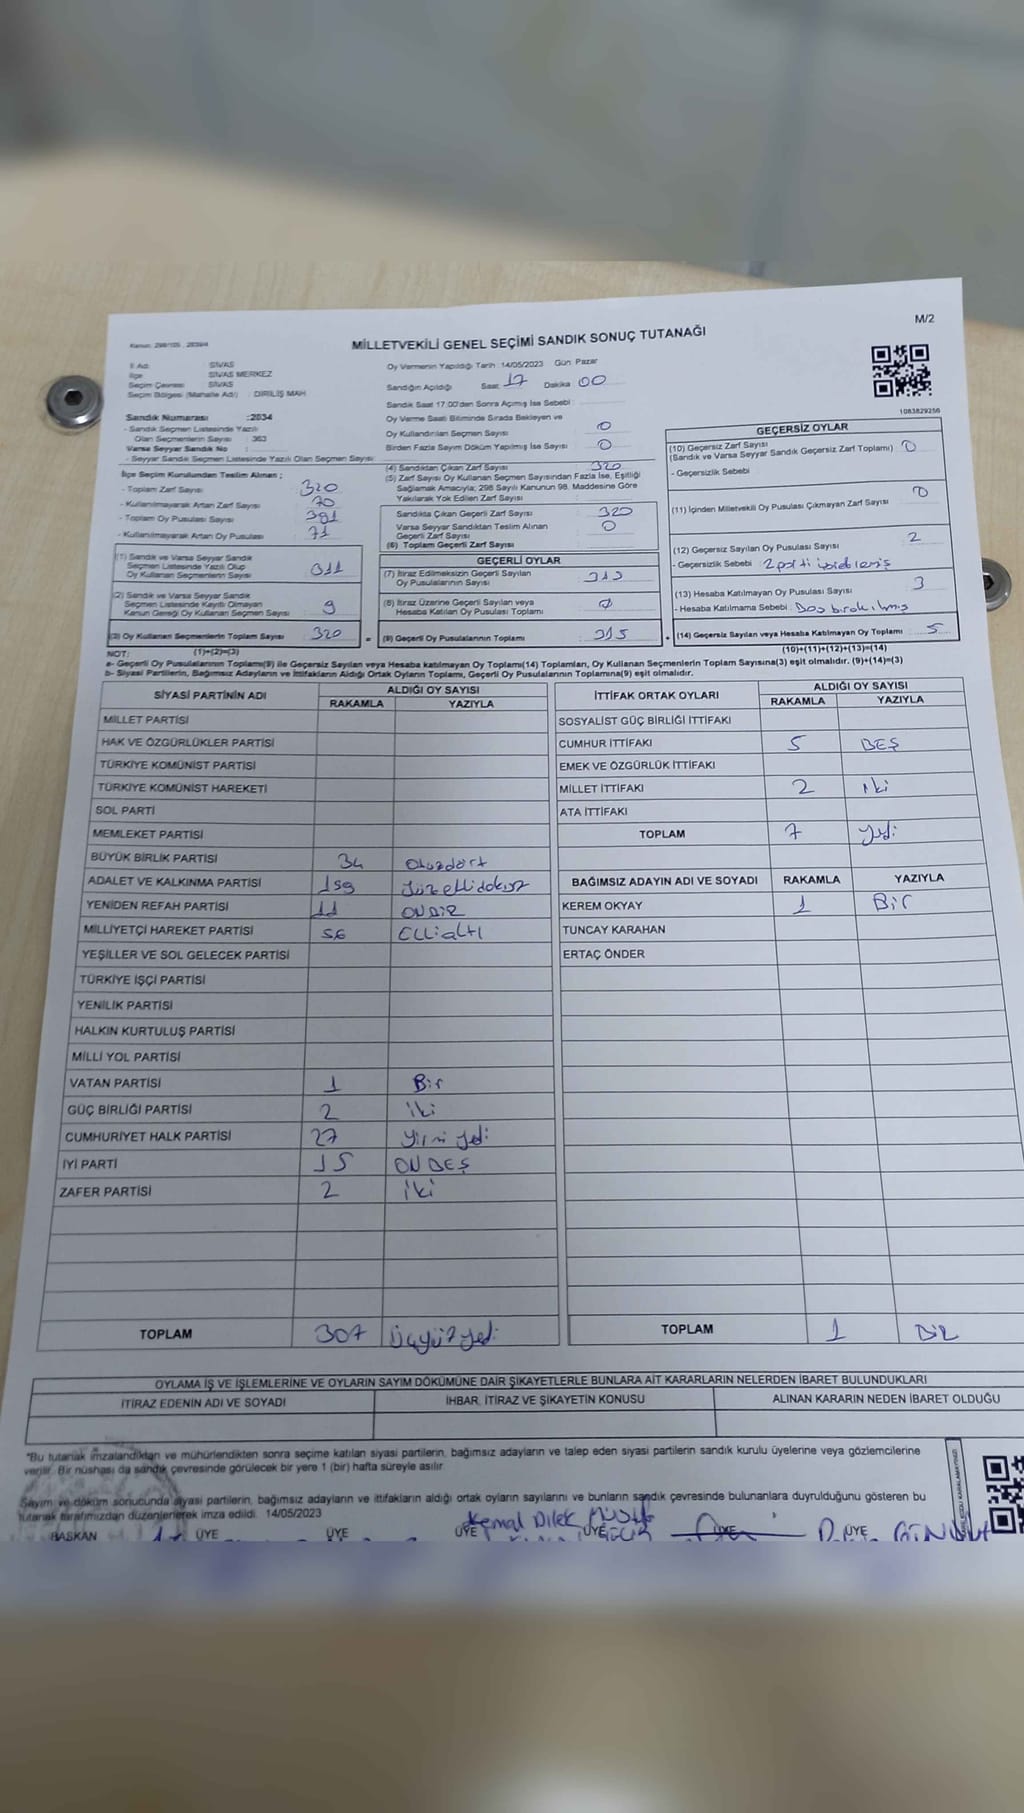 M/2
Kanun: 298/105 , 2839/4
MİLLETVEKİLİ GENEL SEÇİMİ SANDIK SONUÇ TUTANAĞI
İl Adı: SİVAS
İlçe SİVAS MERKEZ
Seçim Çevresi : SİVAS
Seçim Bölgesi (Mahalle Ad) : DİRİLİŞ MAH
Sandık Numarası :2034
- Sandık Seçmen Listesinde Yazılı
Olan Seçmenlerin Sayısı : 363
Varsa Seyyar Sandık No :
- Seyyar Sandık Seçmen Listesinde Yazılı Olan Seçmen Sayısı:
Oy Vermenin Yapıldığı Tarih :14/05/2023 Gün: Pazar
Sandığın Açıldığı Saat: 17 Dakika 00
Sandık Saat 17:00'den Sonra Açımış İse Sebebi :
Oy Verme Saati Bitiminde Sırada Bekleyen ve
Oy Kullandırılan Seçmen Sayısı 0
Birden Fazla Sayım Döküm Yapılmış İse Sayısı 0
1083829256
İlçe Seçim Kurulundan Teslim Alınan ;
- Toplam Zarf Sayısı
- Kullanılmayarak Artan Zarf Sayısı 70
- Toplam Oy Pusulası Sayısı 391
- Kullanılmayarak Artan Oy Pusulası 71
(1) Sandık ve Varsa Seyyar Sandık
Seçmen Listesinde Yazılı Olup
Oy Kullanan Seçmenlerin Sayısı 311
(2) Sandık ve Varsa Seyyar Sandık
Seçmen Listesinde Kayıtlı Olmayan
Kanun Gereği Oy Kullanan Seçmen Sayısı 9
(3) Oy Kullanan Seçmenlerin Toplam Sayısı 320 =
(1)+(2)=(3)
(4) Sandıktan Çıkan Zarf Sayısı 320
(5) Zarf Sayısı Oy Kullanan Seçmen Sayısından Fazla İse, Eşitliği
Sağlamak Amacıyla; 298 Sayılı Kanunun 98. Maddesine Göre
Yakılarak Yok Edilen Zarf Sayısı
Sandıkta Çıkan Geçerli Zarf Sayısı 320
Varsa Seyyar Sandıktan Teslim Alınan
Geçerli Zarf Sayısı 0
(6) Toplam Geçerli Zarf Sayısı
GEÇERLİ OYLAR
(7) İtiraz Edilmeksizin Geçerli Sayılan
Oy Pusulalarının Sayısı
(8) İtiraz Üzerine Geçerli Sayılan veya
Hesaba Katılan Oy Pusulası Toplamı 0
(9) Geçerli Oy Pusulalarının Toplamı 315 +
GEÇERSİZ OYLAR
(10) Geçersiz Zarf Sayısı
(Sandık ve Varsa Seyyar Sandık Geçersiz Zarf Toplamı) 0
- Geçersizlik Sebebi
(11) İçinden Milletvekili Oy Pusulası Çıkmayan Zarf Sayısı 0
(12) Geçersiz Sayılan Oy Pusulası Sayısı 2
- Geçersizlik Sebebi 2 parti
(13) Hesaba Katılmayan Oy Pusulası Sayısı 3
- Hesaba Katılmama Sebebi : Boş bırakılmış
(14) Geçersiz Sayılan veya Hesaba Katılmayan Oy Toplamı 5
(10)+(11)+(12)+(13)=(14)
NOT:
a- Geçerli Oy Pusulalarının Toplamı(9) ile Geçersiz Sayılan veya Hesaba katılmayan Oy Toplamı(14) Toplamları, Oy Kullanan Seçmenlerin Toplam Sayısına(3) eşit olmalıdır. (9)+(14)=(3)
b- Siyasi Partilerin, Bağımsız Adayların ve İttifakların Aldığı Ortak Oyların Toplamı, Geçerli Oy Pusulalarının Toplamına(9) eşit olmalıdır.
SİYASİ PARTİNİN ADI ALDIĞI OY SAYISI
RAKAMLA YAZIYLA
MİLLET PARTİSİ
HAK VE ÖZGÜRLÜKLER PARTİSİ
TÜRKİYE KOMÜNİST PARTİSİ
TÜRKİYE KOMÜNİST HAREKETİ
SOL PARTİ
MEMLEKET PARTİSİ
BÜYÜK BİRLİK PARTİSİ 34 Otuzdört
ADALET VE KALKINMA PARTİSİ 159 Yüzellidokuz
YENİDEN REFAH PARTİSİ 11 ONBİR
MİLLİYETÇİ HAREKET PARTİSİ 56 Ellialtı
YEŞİLLER VE SOL GELECEK PARTİSİ
TÜRKİYE İŞÇİ PARTİSİ
YENİLİK PARTİSİ
HALKIN KURTULUŞ PARTİSİ
MİLLİ YOL PARTİSİ
VATAN PARTİSİ 1 Bir
GÜÇ BİRLİĞİ PARTİSİ 2 iki
CUMHURİYET HALK PARTİSİ 27 yirmi yedi
İYİ PARTİ 15 ON BEŞ
ZAFER PARTİSİ 2 iki
TOPLAM 307 Üçyüz yedi
İTTİFAK ORTAK OYLARI ALDIĞI OY SAYISI
RAKAMLA YAZIYLA
SOSYALİST GÜÇ BİRLİĞİ İTTİFAKI
CUMHUR İTTİFAKI 5 BEŞ
EMEK VE ÖZGÜRLÜK İTTİFAKI
MİLLET İTTİFAKI 2 iki
ATA İTTİFAKI
TOPLAM 7 yedi
BAĞIMSIZ ADAYIN ADI VE SOYADI RAKAMLA YAZIYLA
KEREM OKYAY 1 Bir
TUNCAY KARAHAN
ERTAÇ ÖNDER
TOPLAM 1 BİR
OYLAMA İŞ VE İŞLEMLERİNE VE OYLARIN SAYIM DÖKÜMÜNE DAİR ŞİKAYETLERLE BUNLARA AİT KARARLARIN NELERDEN İBARET BULUNDUKLARI
İTİRAZ EDENİN ADI VE SOYADI İHBAR, İTİRAZ VE ŞİKAYETİN KONUSU ALINAN KARARIN NEDEN İBARET OLDUĞU
*Bu tutanak imzalandıktan ve mühürlendikten sonra seçime katılan siyasi partilerin, bağımsız adayların ve talep eden siyasi partilerin sandık kurulu üyelerine veya gözlemcilerine
verilir. Bir nüshası da sandık çevresinde görülecek bir yere 1 (bir) hafta süreyle asılır.
Sayım ve döküm sonucunda siyasi partilerin, bağımsız adayların ve ittifakların aldığı ortak oyların sayılarını ve bunların sandık çevresinde bulunanlara duyrulduğunu gösteren bu
tutanak tarafımızdan düzenlenerek imza edildi. 14/05/2023
Kemal Dilek
BAŞKAN ÜYE ÜYE ÜYE ÜYE ÜYE ÜYE